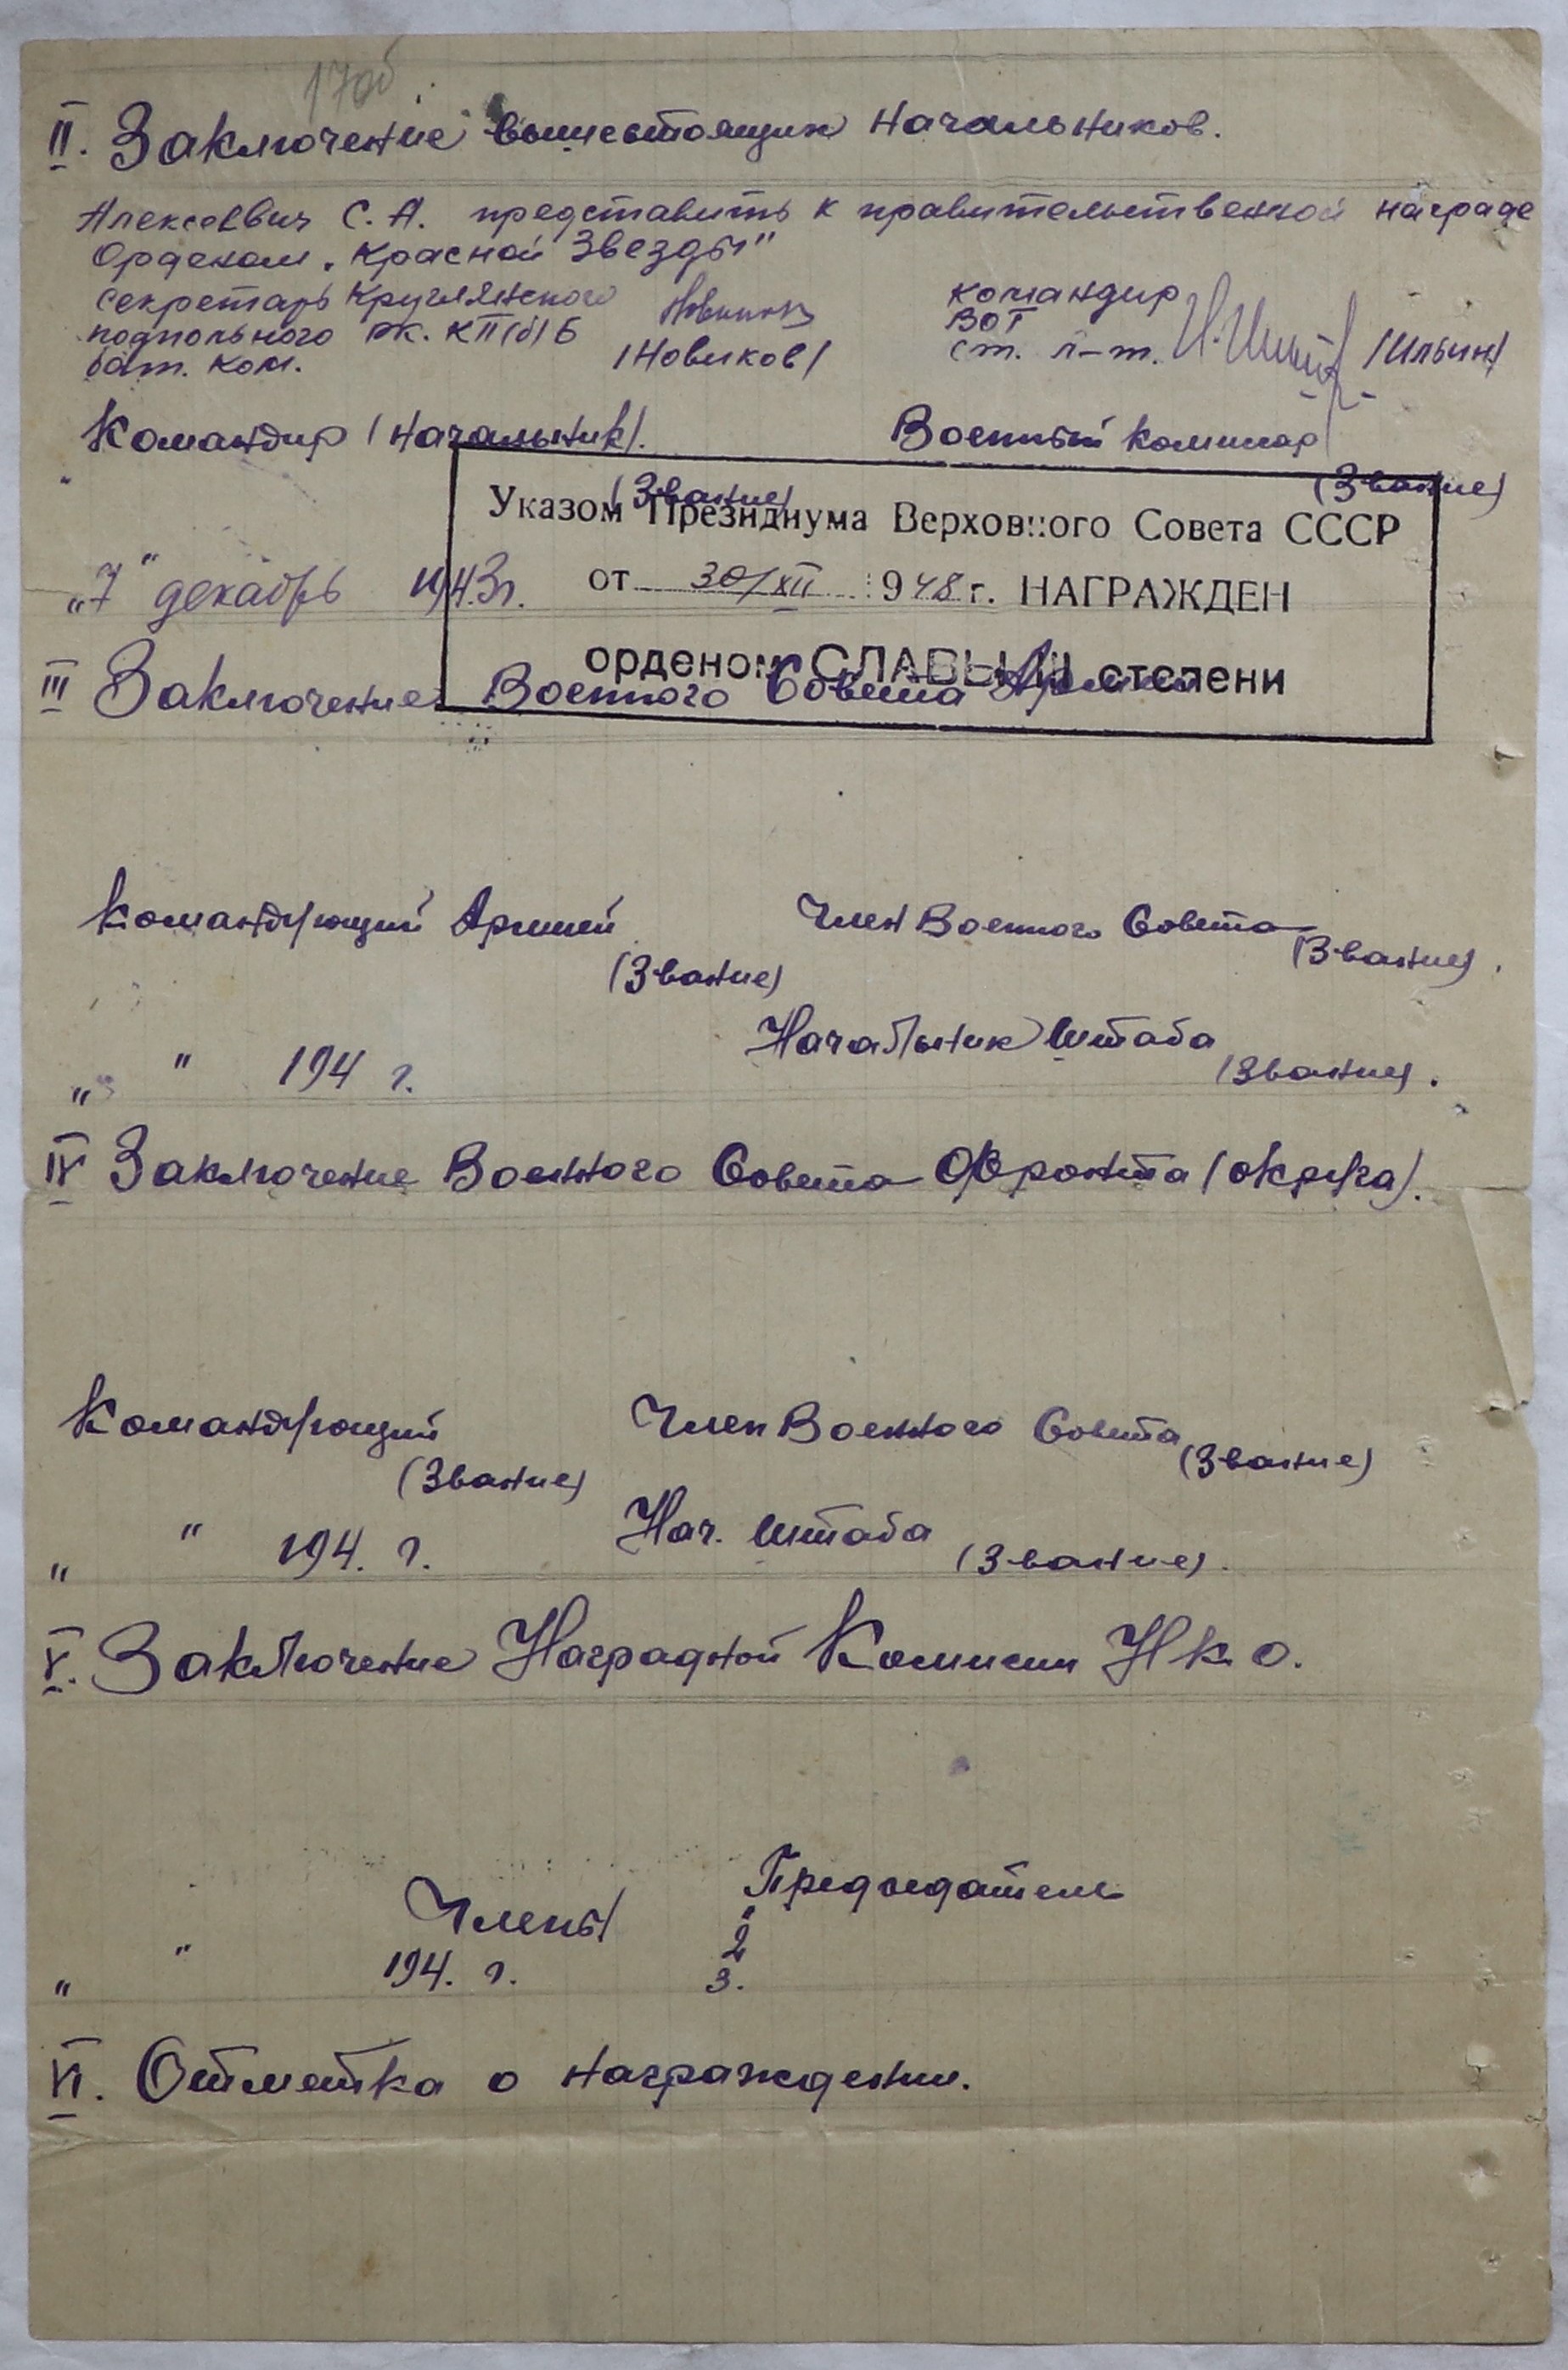 17об
II. Заключение вышестоящих начальников.
Алексеевич С. А. представить к правительственной награде
Орденом „Красной Звезды"
секретарь Круглянского Новиков командир
подпольного рк. КП(б)Б ВОГ
бат. ком. /Новиков/ ст. л-т. /Ильин/
Командир /начальник/. Военный комиссар
(Звание) (Звание)
Указом Президиума Верховного Совета СССР
„7" декабрь 1943г. от 30/XII 1948 г. НАГРАЖДЕН
орденом СЛАВЫ III степени
III Заключение Военного Совета Армии
Командующий Армией Член Военного Совета
(Звание) (Звание).
Начальник Штаба
„ " 194 г. (Звание).
IV Заключение Военного Совета Фронта (округа).
Командующий Член Военного Совета
(Звание) (Звание)
„ " 194. г. Нач. Штаба (Звание).
V. Заключение Наградной Комисии Н К О.
Председатель
Члены "
2
„ " 194. г. 3.
VI. Отметка о награждении.